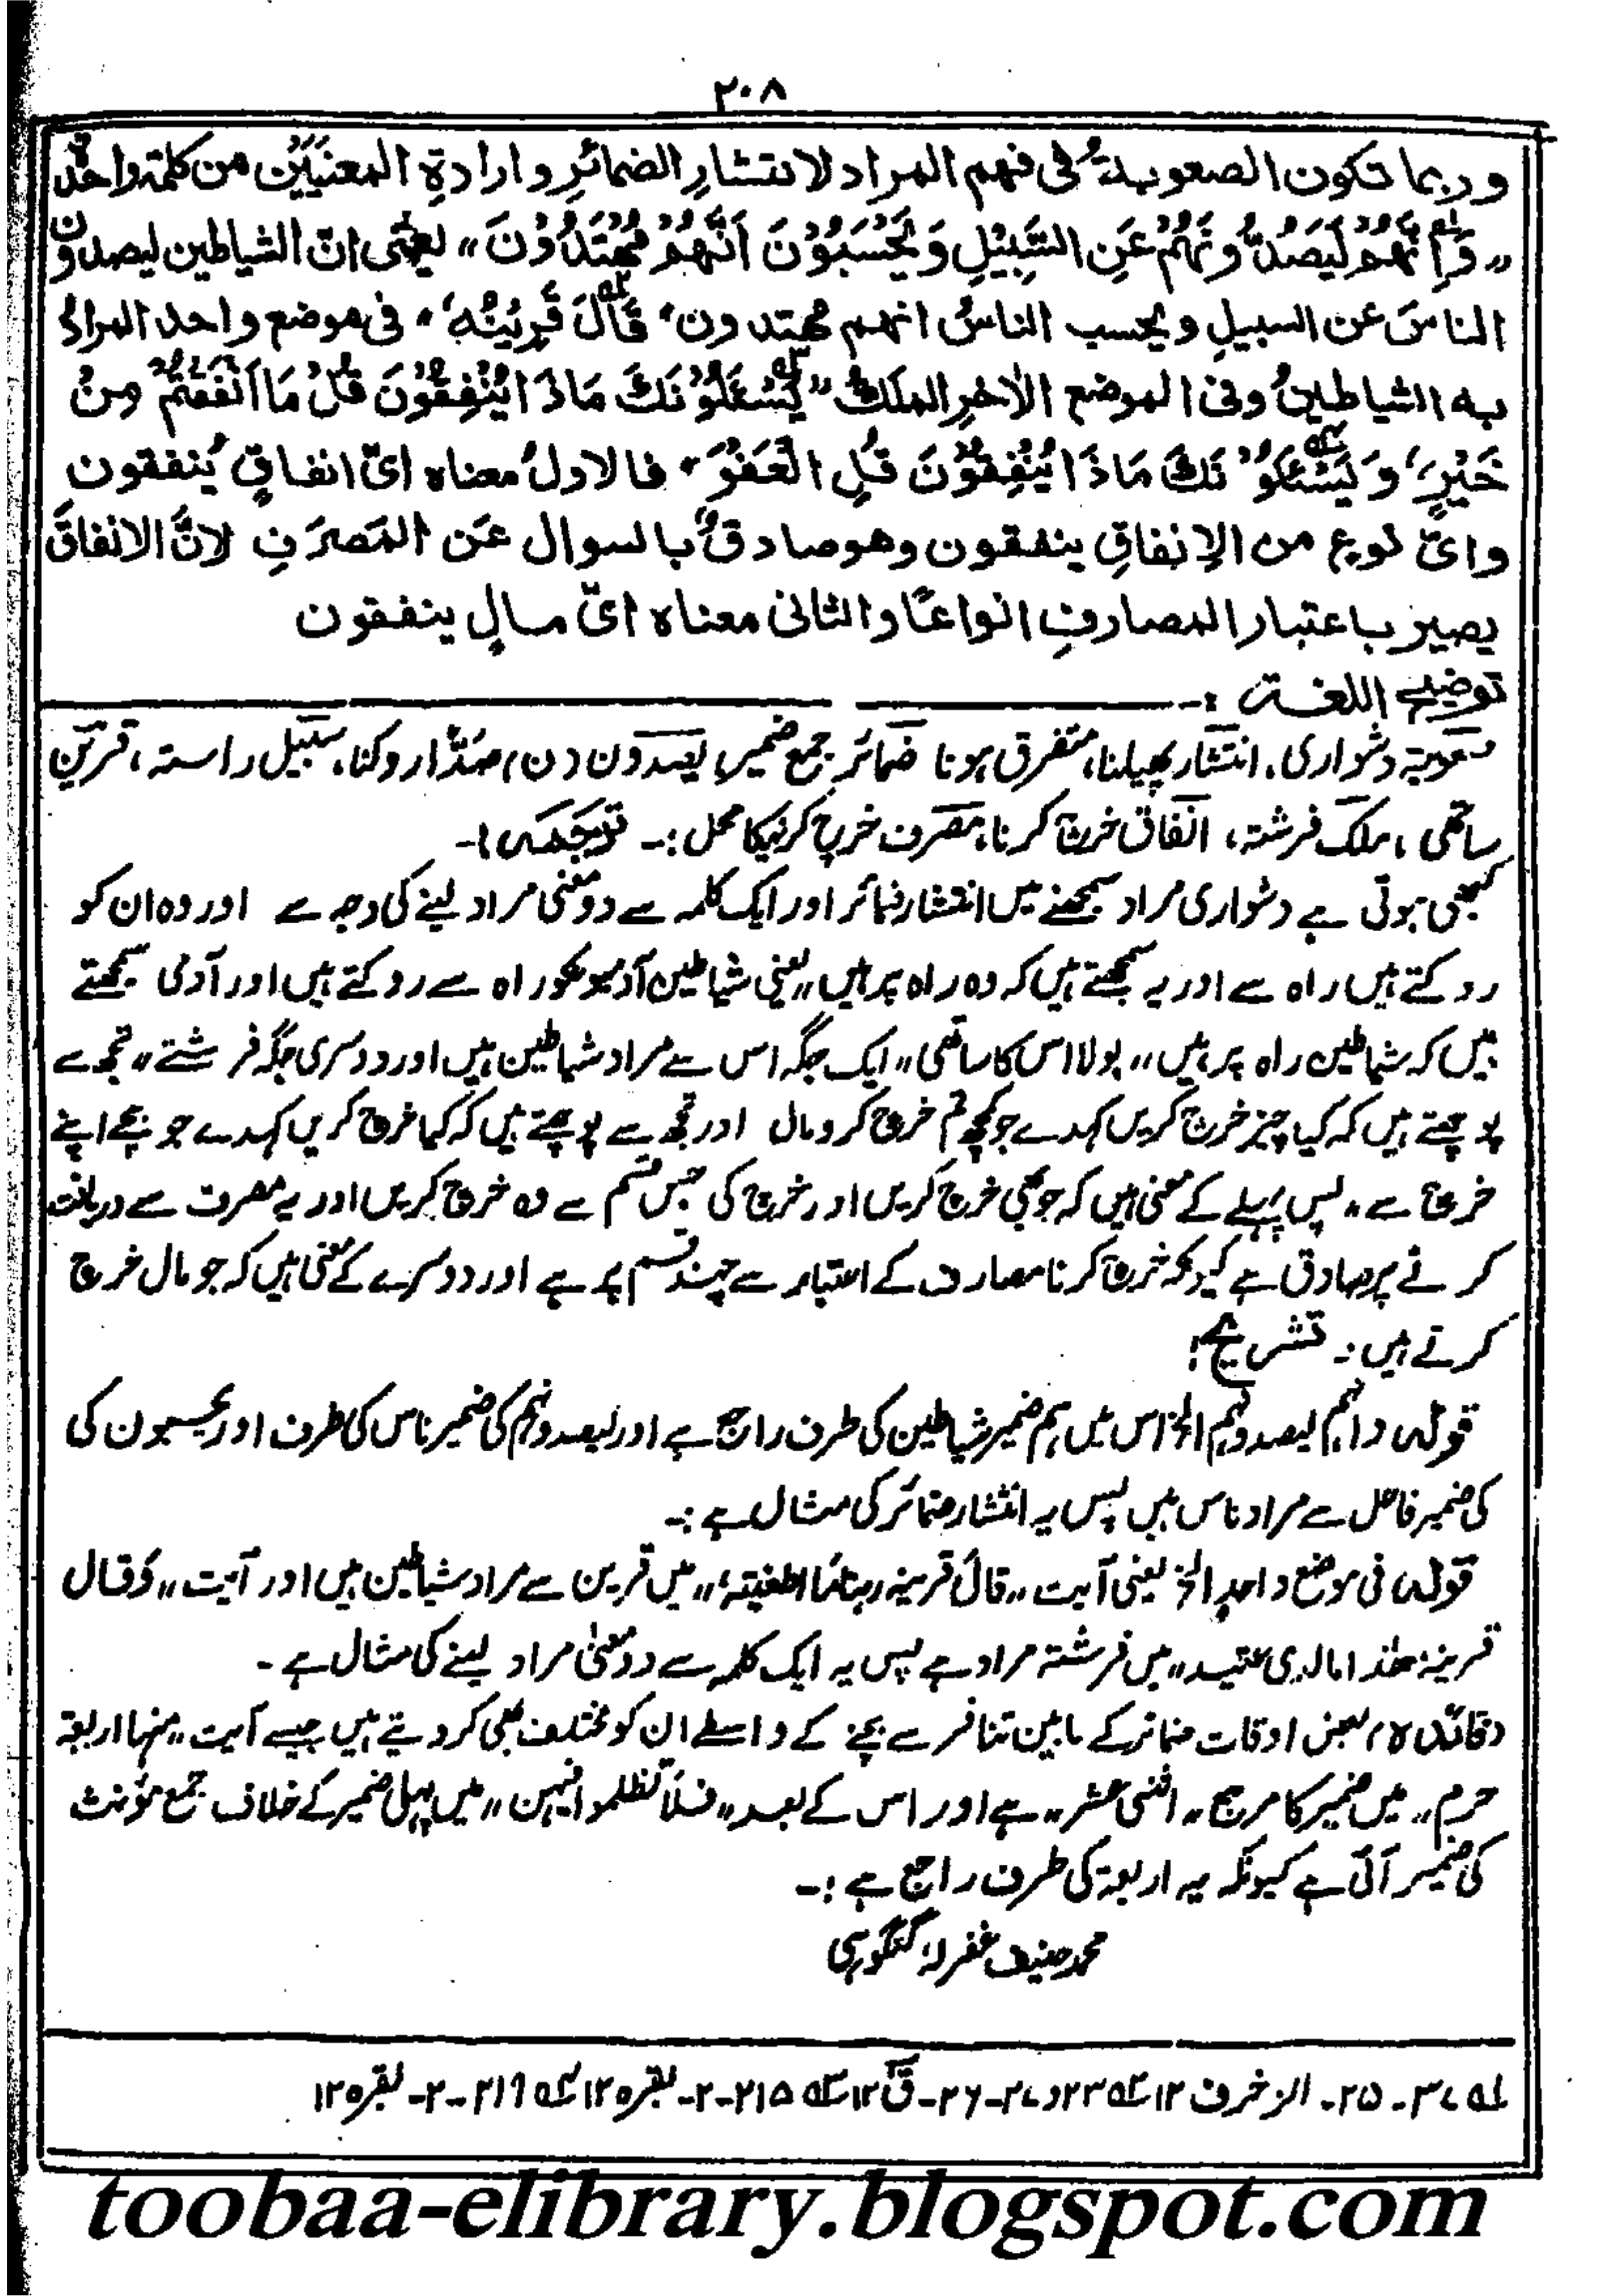 ٢٠٨
وربما تكون الصعوبةُ فی فهم المراد لانتشارِ الضمائرِ و ارادةِ المعنيَيْنِ من كلمةٍ واحدةٍ
„وَاِنَّهُمْ لَيَصُدُّوْنَهُمْ عَنِ السَّبِيْلِ وَيَحْسَبُوْنَ اَنَّهُمْ مُّهْتَدُوْنَ„ يعنی انّ الشياطين ليصدون
الناسَ عن السبيلِ ويحسب الناسُ انهم مهتدون، قَالَ قَرِيْنُهٗ، فی موضع واحد المرادُ
به الشياطينُ وفی الموضع الاٰخرِ الملَكُ „يَسْـَٔلُوْنَكَ مَاذَا يُنْفِقُوْنَ قُلْ مَا اَنْفَقْتُمْ مِنْ
خَيْرٍ، وَ يَسْـَٔلُوْنَكَ مَاذَا يُنْفِقُوْنَ قُلِ الْعَفْوَ، فالاولُ معناه ایّ انفاقٍ يُنفقون
وایّ نوعٍ من الاِنفاقِ ينفقون وهو صادقٌ بالسوال عَن المَصرَفِ لانَّ الانفاقَ
يصير باعتبار المصارفِ انواعًا والثانی معناه ایّ مالٍ ينفقون
توضیح اللغۃ :-
صعوبۃ دشواری، انتشار پھیلنا، متفرق ہونا ضمائر جمع ضمیر، یصدون (ن) صَدًّا روکنا، سبیل راستہ، قرین
ساتھی، ملک فرشتہ، انفاق خرچ کرنا، مصرف خرچ کرنیکا محل :- ترجمہ :-
کبھی ہوتی ہے دشواری مراد سمجھنے میں انتشار ضمائر اور ایک کلمہ سے دو معنی مراد لینے کی وجہ سے اور وہ ان کو
روکتے ہیں راہ سے اور یہ سمجھتے ہیں کہ وہ راہ پر ہیں„ یعنی شیاطین آدمیوںکو راہ سے روکتے ہیں اور آدمی سمجھتے
ہیں کہ شیاطین راہ پر ہیں „بولا اس کا ساتھی„ ایک جگہ اس سے مراد شیاطین ہیں اور دوسری جگہ فرشتے„ تجھ سے
پوچھتے ہیں کہ کیا چیز خرچ کریں کہدے جو کچھ تم خرچ کرو مال اور تجھ سے پوچھتے ہیں کہ کیا خرچ کریں کہدے جو بچے اپنے
خرچ سے، پس پہلے کے معنی ہیں کہ جو بھی خرچ کریں اور خرچ کی جس قسم سے وہ خرچ کریں اور یہ مصرف سے دریافت
کرنے پر صادق ہے کیونکہ خرچ کرنا مصارف کے اعتبار سے چند قسم پر ہے اور دوسرے کے معنی ہیں کہ جو مال خرچ
کرتے ہیں :- تشریح :
قولہ وانہم لیصدونہم الخ اس میں ہم ضمیر شیاطین کی طرف راجع ہے اور لیصدونہم کی ضمیر ناس کی طرف اور یحسبون کی
کی ضمیر فاعل سے مراد ناس ہیں پس یہ انتشار ضمائر کی مثال ہے :-
قولہ فی موضع واحد الخ یعنی آیت „قال قرینہ ربنا ما اطغیتہ„ میں قرین سے مراد شیاطین ہیں اور آیت „وَقال
قرینہ ھٰذا مالدی عتید„ میں فرشتہ مراد ہے پس یہ ایک کلمہ سے دو معنیٰ مراد لینے کی مثال ہے -
(فائدہ) بعض اوقات ضمائر کے مابین تنافر سے بچنے کے واسطے ان کو مختلف بھی کر دیتے ہیں جیسے آیت „منہا اربعۃ
حرم„ میں ضمیر کا مرجع „اثنی عشر„ ہے اور اس کے بعد „فلا تظلموا فیہن„ میں پہلی ضمیر کے خلاف جمع مؤنث
کی ضمیر آئی ہے کیونکہ یہ اربعۃ کی طرف راجع ہے :-
محمد حنیف غفرلہٗ گنگوہی
لہ ٣٧ - ٢٥ - الزخرف ١٢ ٢ہ ٢٣ و ٢٧ - ٢٦ - قٓ ١٢ ٣ہ ٢١٥ - ٢ - بقرہ ١٢ ٤ہ ٢١٩ - ٢ - بقرہ ١٢
toobaa-elibrary.blogspot.com